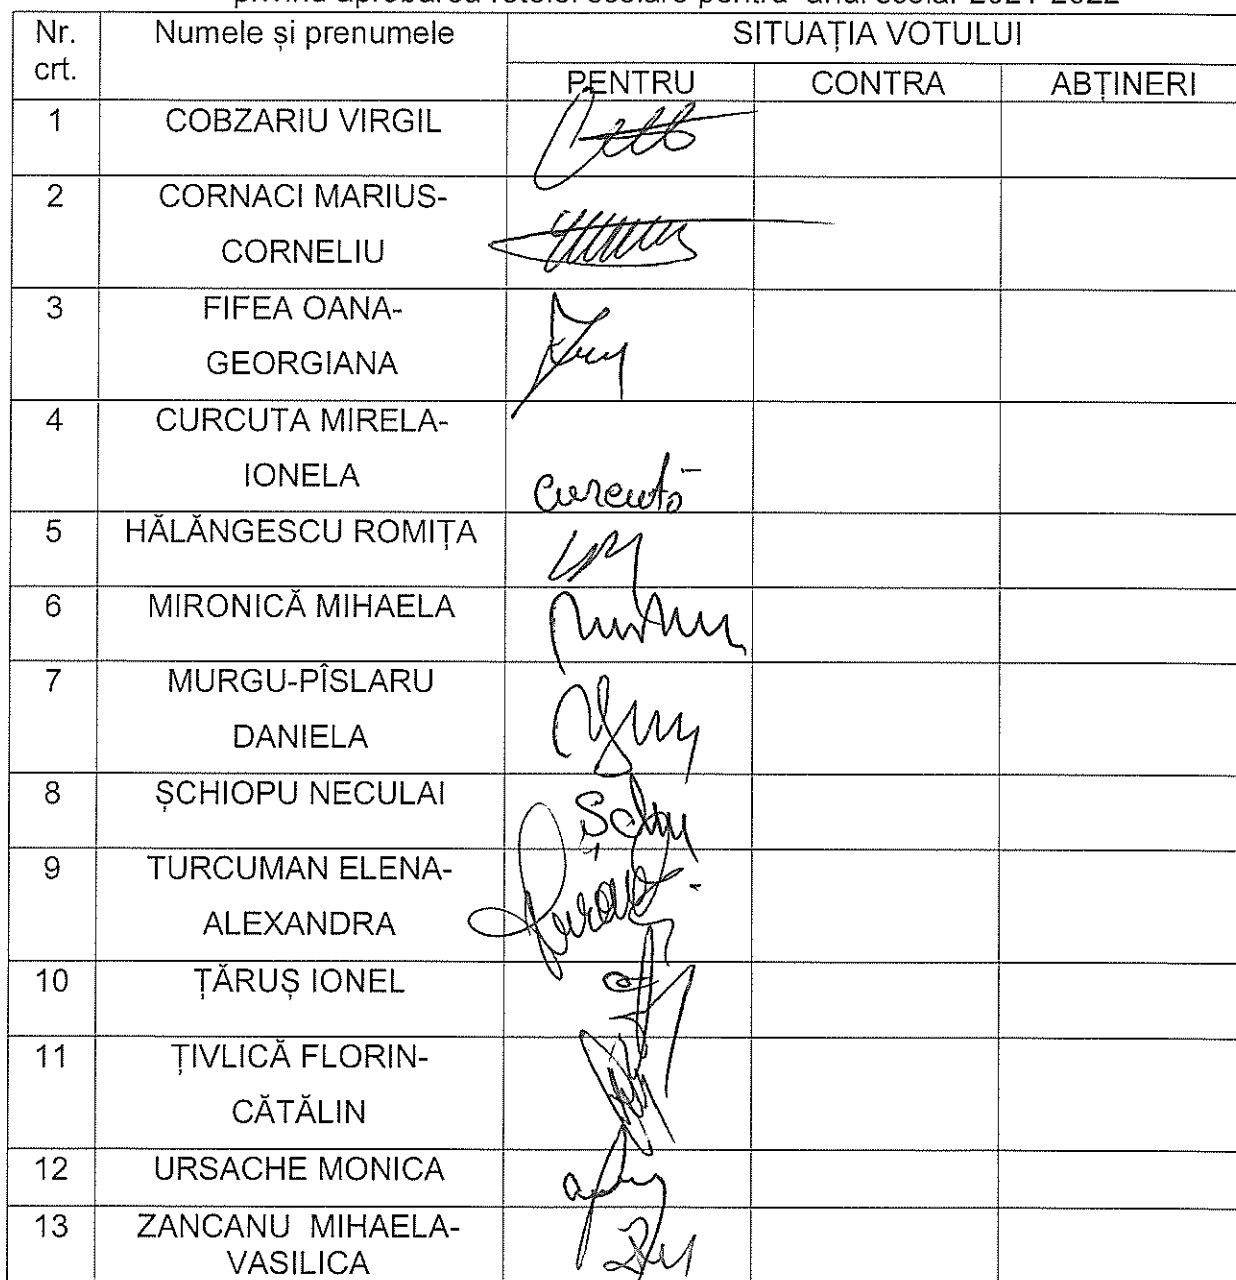 privind aprobarea rețelei școlare pentru anul școlar 2021-2022
Nr. crt.
Numele și prenumele
SITUAȚIA VOTULUI
PENTRU
CONTRA
ABȚINERI
1 COBZARIU VIRGIL
2 CORNACI MARIUS-
CORNELIU
3 FIFEA OANA-
GEORGIANA
4 CURCUTA MIRELA-
IONELA
curcută
5 HĂLĂNGESCU ROMIȚA
6 MIRONICĂ MIHAELA
7 MURGU-PÎSLARU
DANIELA
8 ȘCHIOPU NECULAI
9 TURCUMAN ELENA-
ALEXANDRA
10 ȚĂRUȘ IONEL
11 ȚIVLICĂ FLORIN-
CĂTĂLIN
12 URSACHE MONICA
13 ZANCANU MIHAELA-
VASILICA